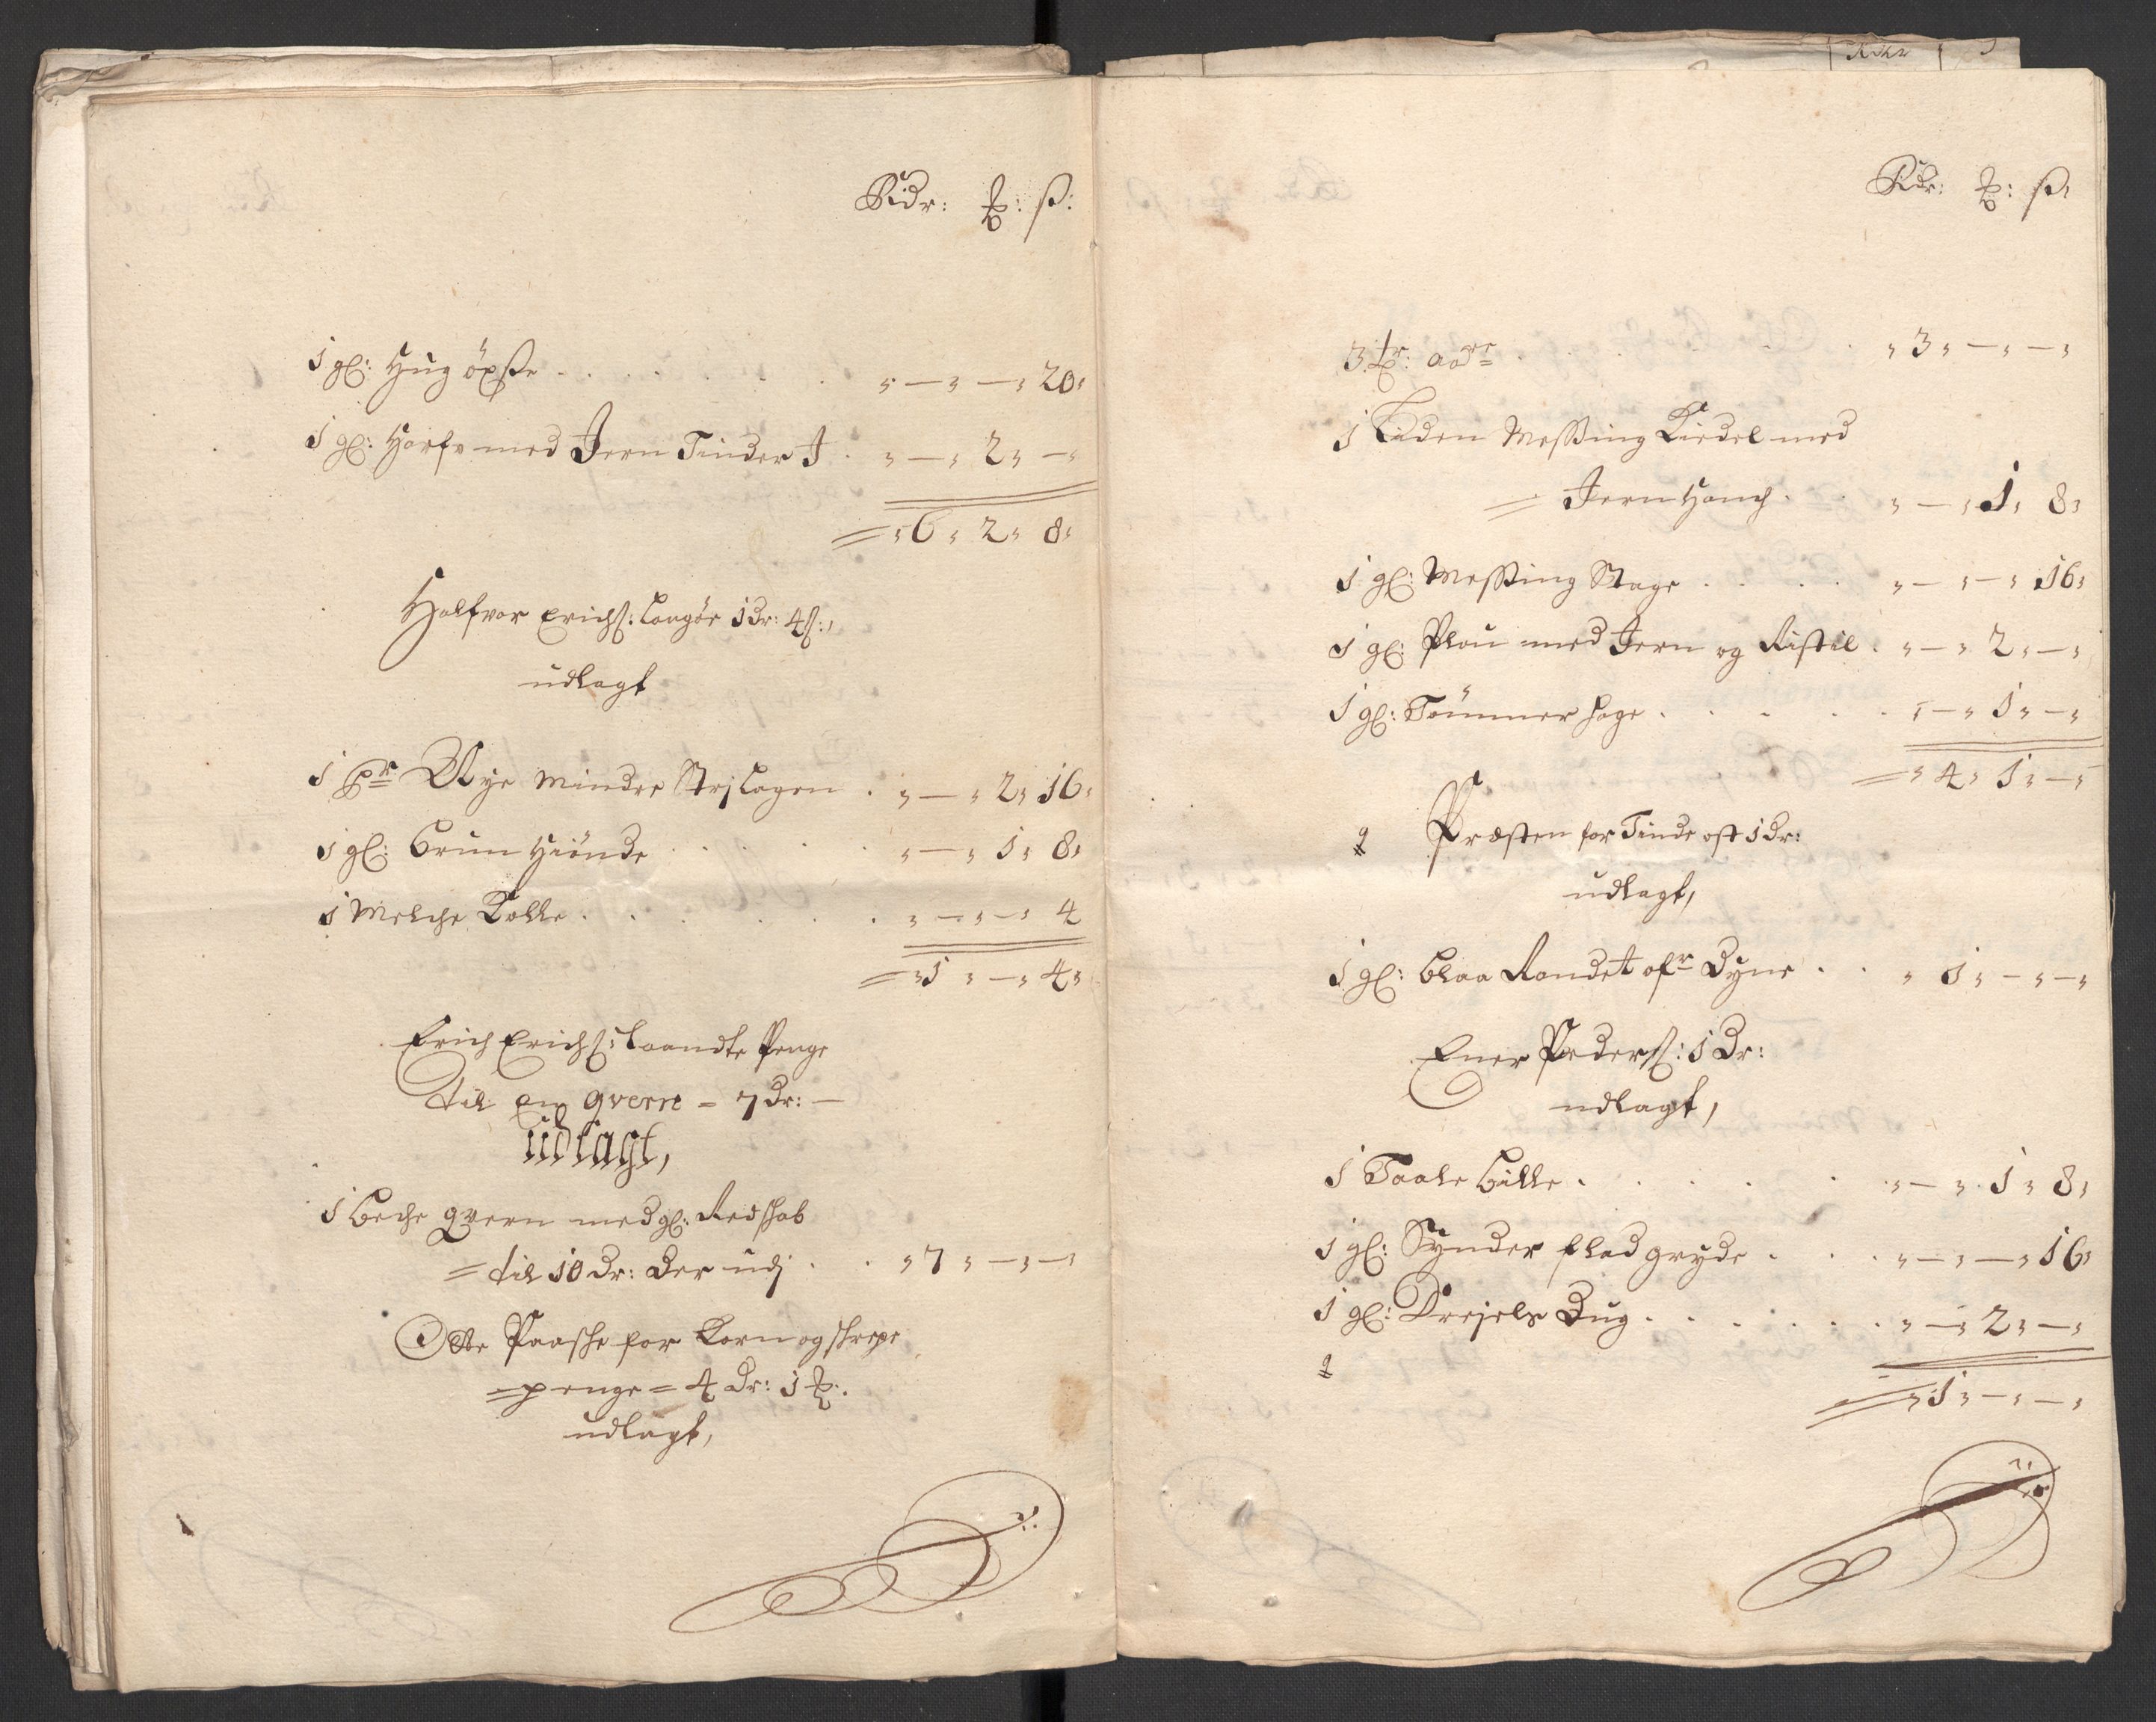 Rdr: ℔: ß:
1 gl: Hug öxse . . . . . . " — " — " 20 "
1 gl: Harfve med Jern Tinder I . " — " 2 " — "
= " 6 " 2 " 8 "
Halfvor Erichs: Langør 1 Dr: 4 ß:,
udlagt
1 Pr Nye Mindre Strj Lagen . " — " 2 " 16 "
1 gl: Brun Hiønde . . . . " — " 1 " 8 "
1 Melche Kolle . . . . . " — " — " 4
= " 1 " — " 4 "
Erich Erichs: Laandte Penge
til en qvern = 7 Dr: —
udlagt,
1 Beche qvern med gl: Redskab
= til 10 Dr: der udj . . " 7 " — " — "
Otte Paaske for Korn og
= penge = 4 Dr: 1 ℔:
udlagt,
Rdr: ℔: ß:
3 . . . . . . " 3 " — " — "
1 Liden Messing Kiedel med
= Jern Hanch . . " — " 1 " 8 "
1 gl: Messing Stage . . . . " — " — " 16 "
1 gl: Plou med Jern og Ristil . " — " 2 " — "
1 gl: Tømmer sage . . . . . " — " 1 " — "
= " 4 " 1 " — "
Præsten for Tinde ost 1 Dr:
udlagt,
1 gl: blaa Randet ofr Dyne . . " 1 " — " — "
Ener Peders: 1 Dr:
udlagt,
1 Taale Bille . . . . . " — " 1 " 8 "
1 gl: Synder flad gryde . . . " — " — " 16 "
1 gl: Drejels Dug . . . . . " — " 2 " — "
= " 1 " — " — "